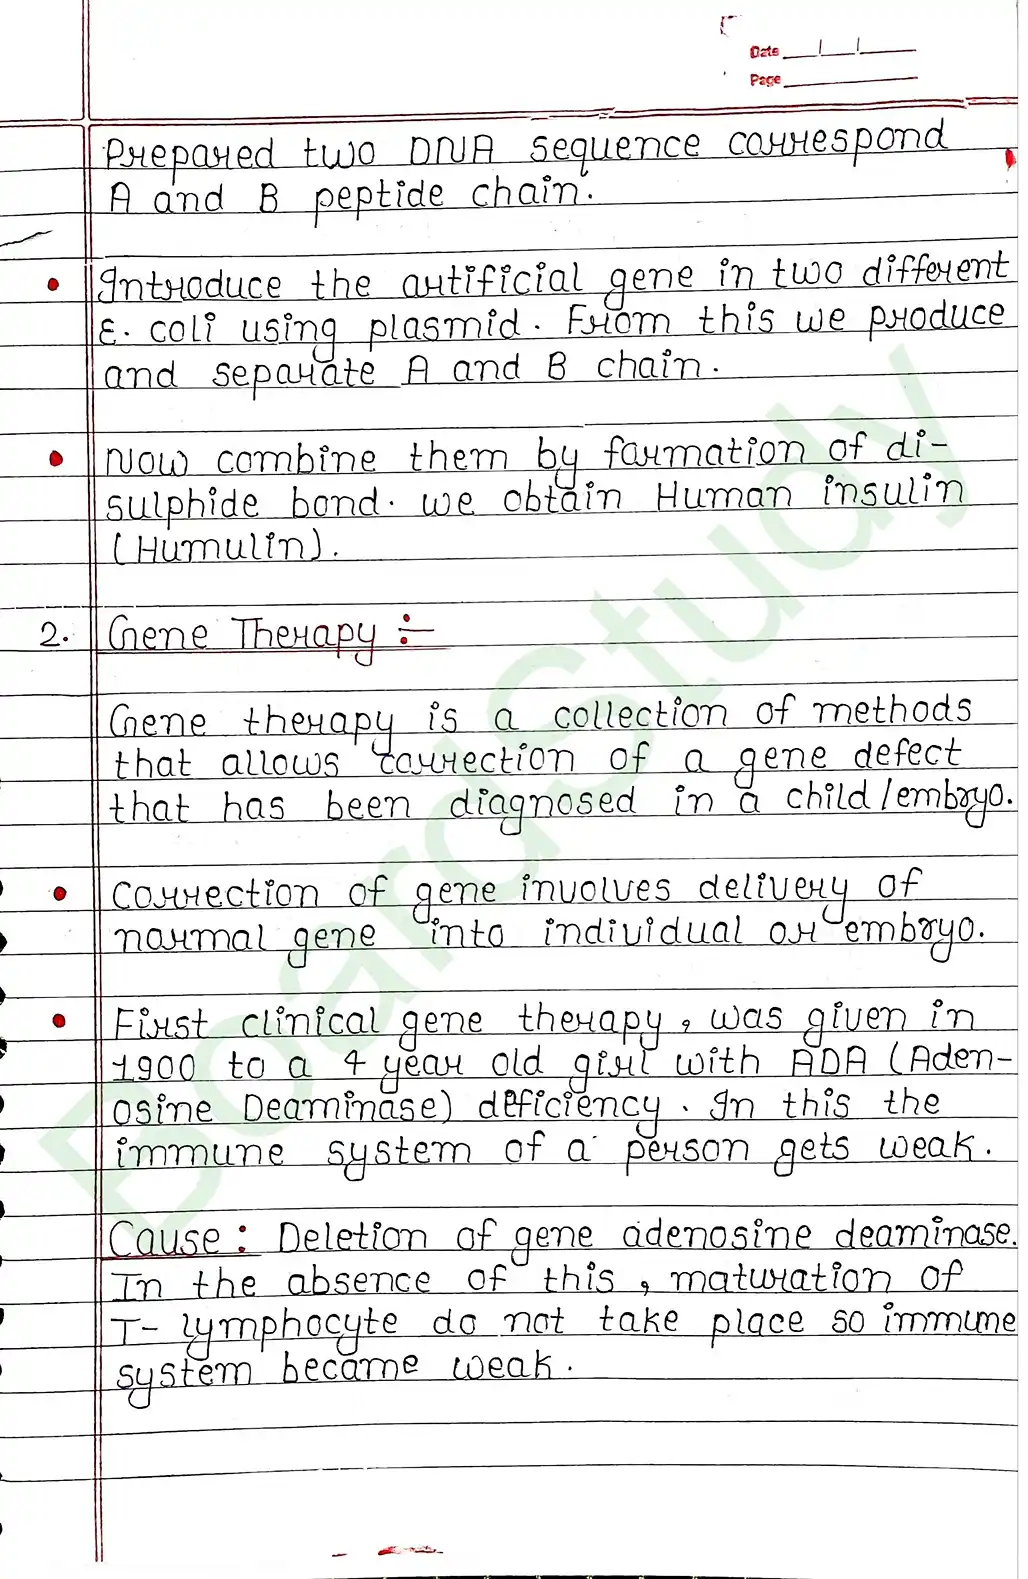 Date
Page
Prepared two DNA sequence correspond
A and B peptide chain.
• Introduce the artificial gene in two different
E. coli using plasmid. From this we produce
and separate A and B chain.
• Now combine them by formation of di-
sulphide bond. we obtain Human insulin
(Humulin).
2. Gene Therapy :-
Gene therapy is a collection of methods
that allows correction of a gene defect
that has been diagnosed in a child/embryo.
• Correction of gene involves delivery of
normal gene into individual or embryo.
• First clinical gene therapy, was given in
1900 to a 4 year old girl with ADA (Aden-
osine Deaminase) defficiency. In this the
immune system of a person gets weak.
Cause: Deletion of gene adenosine deaminase.
In the absence of this, maturation of
T- lymphocyte do not take place so immune
system became weak.
BoardStudy